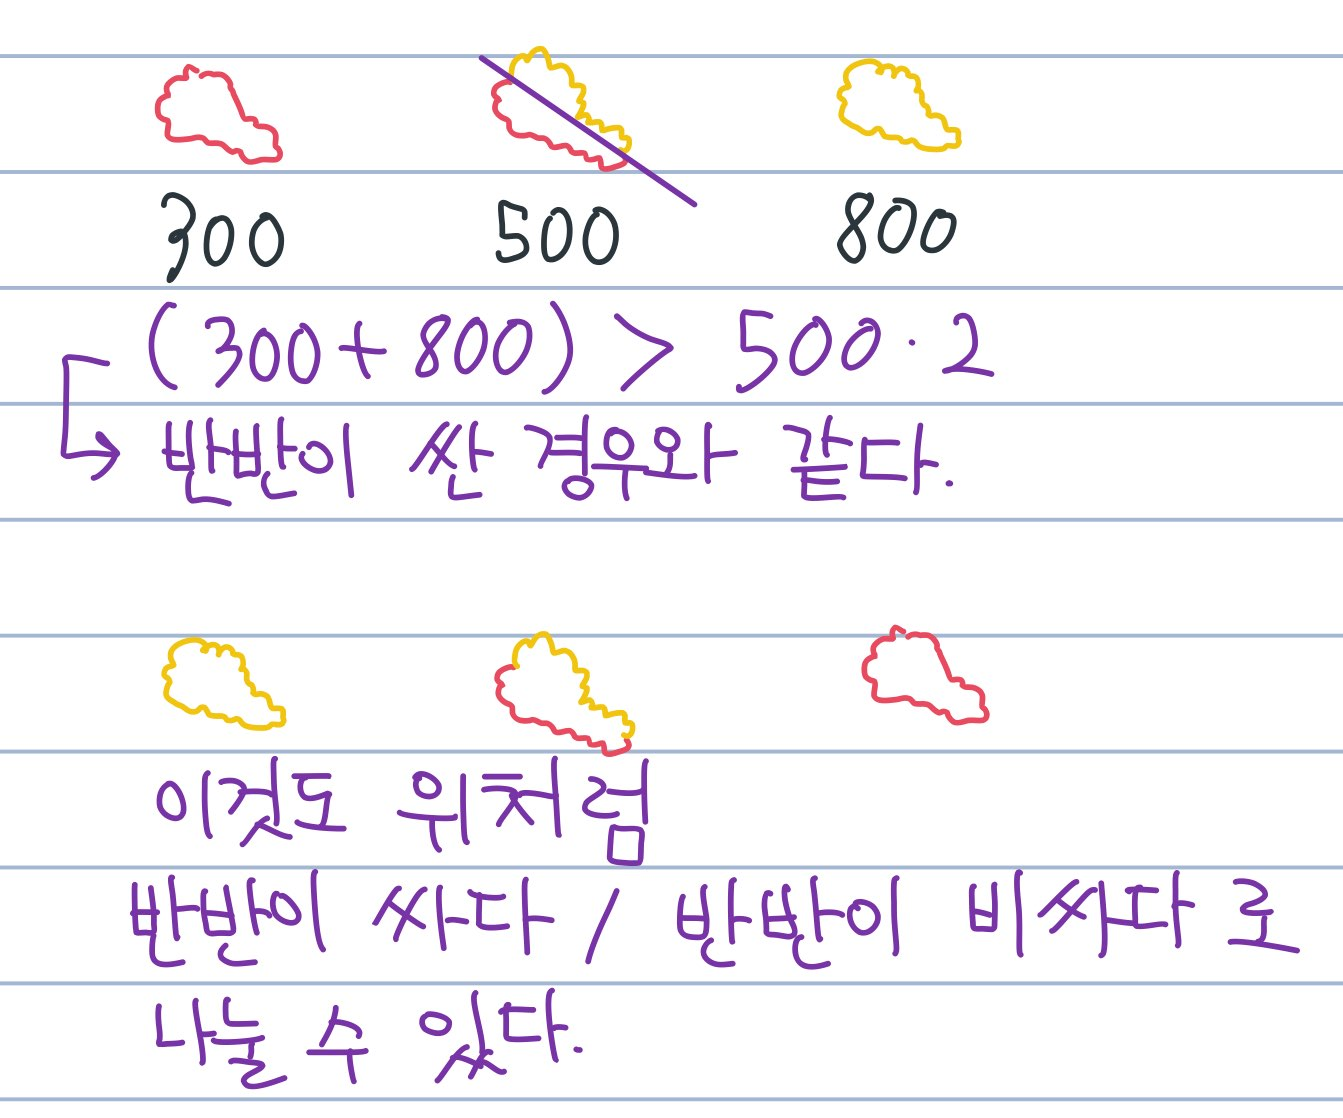 300 500 800
(300+800) > 500·2
반반이 싼 경우와 같다.
이것도 위처럼
반반이 싸다 / 반반이 비싸다 로
나눌 수 있다.